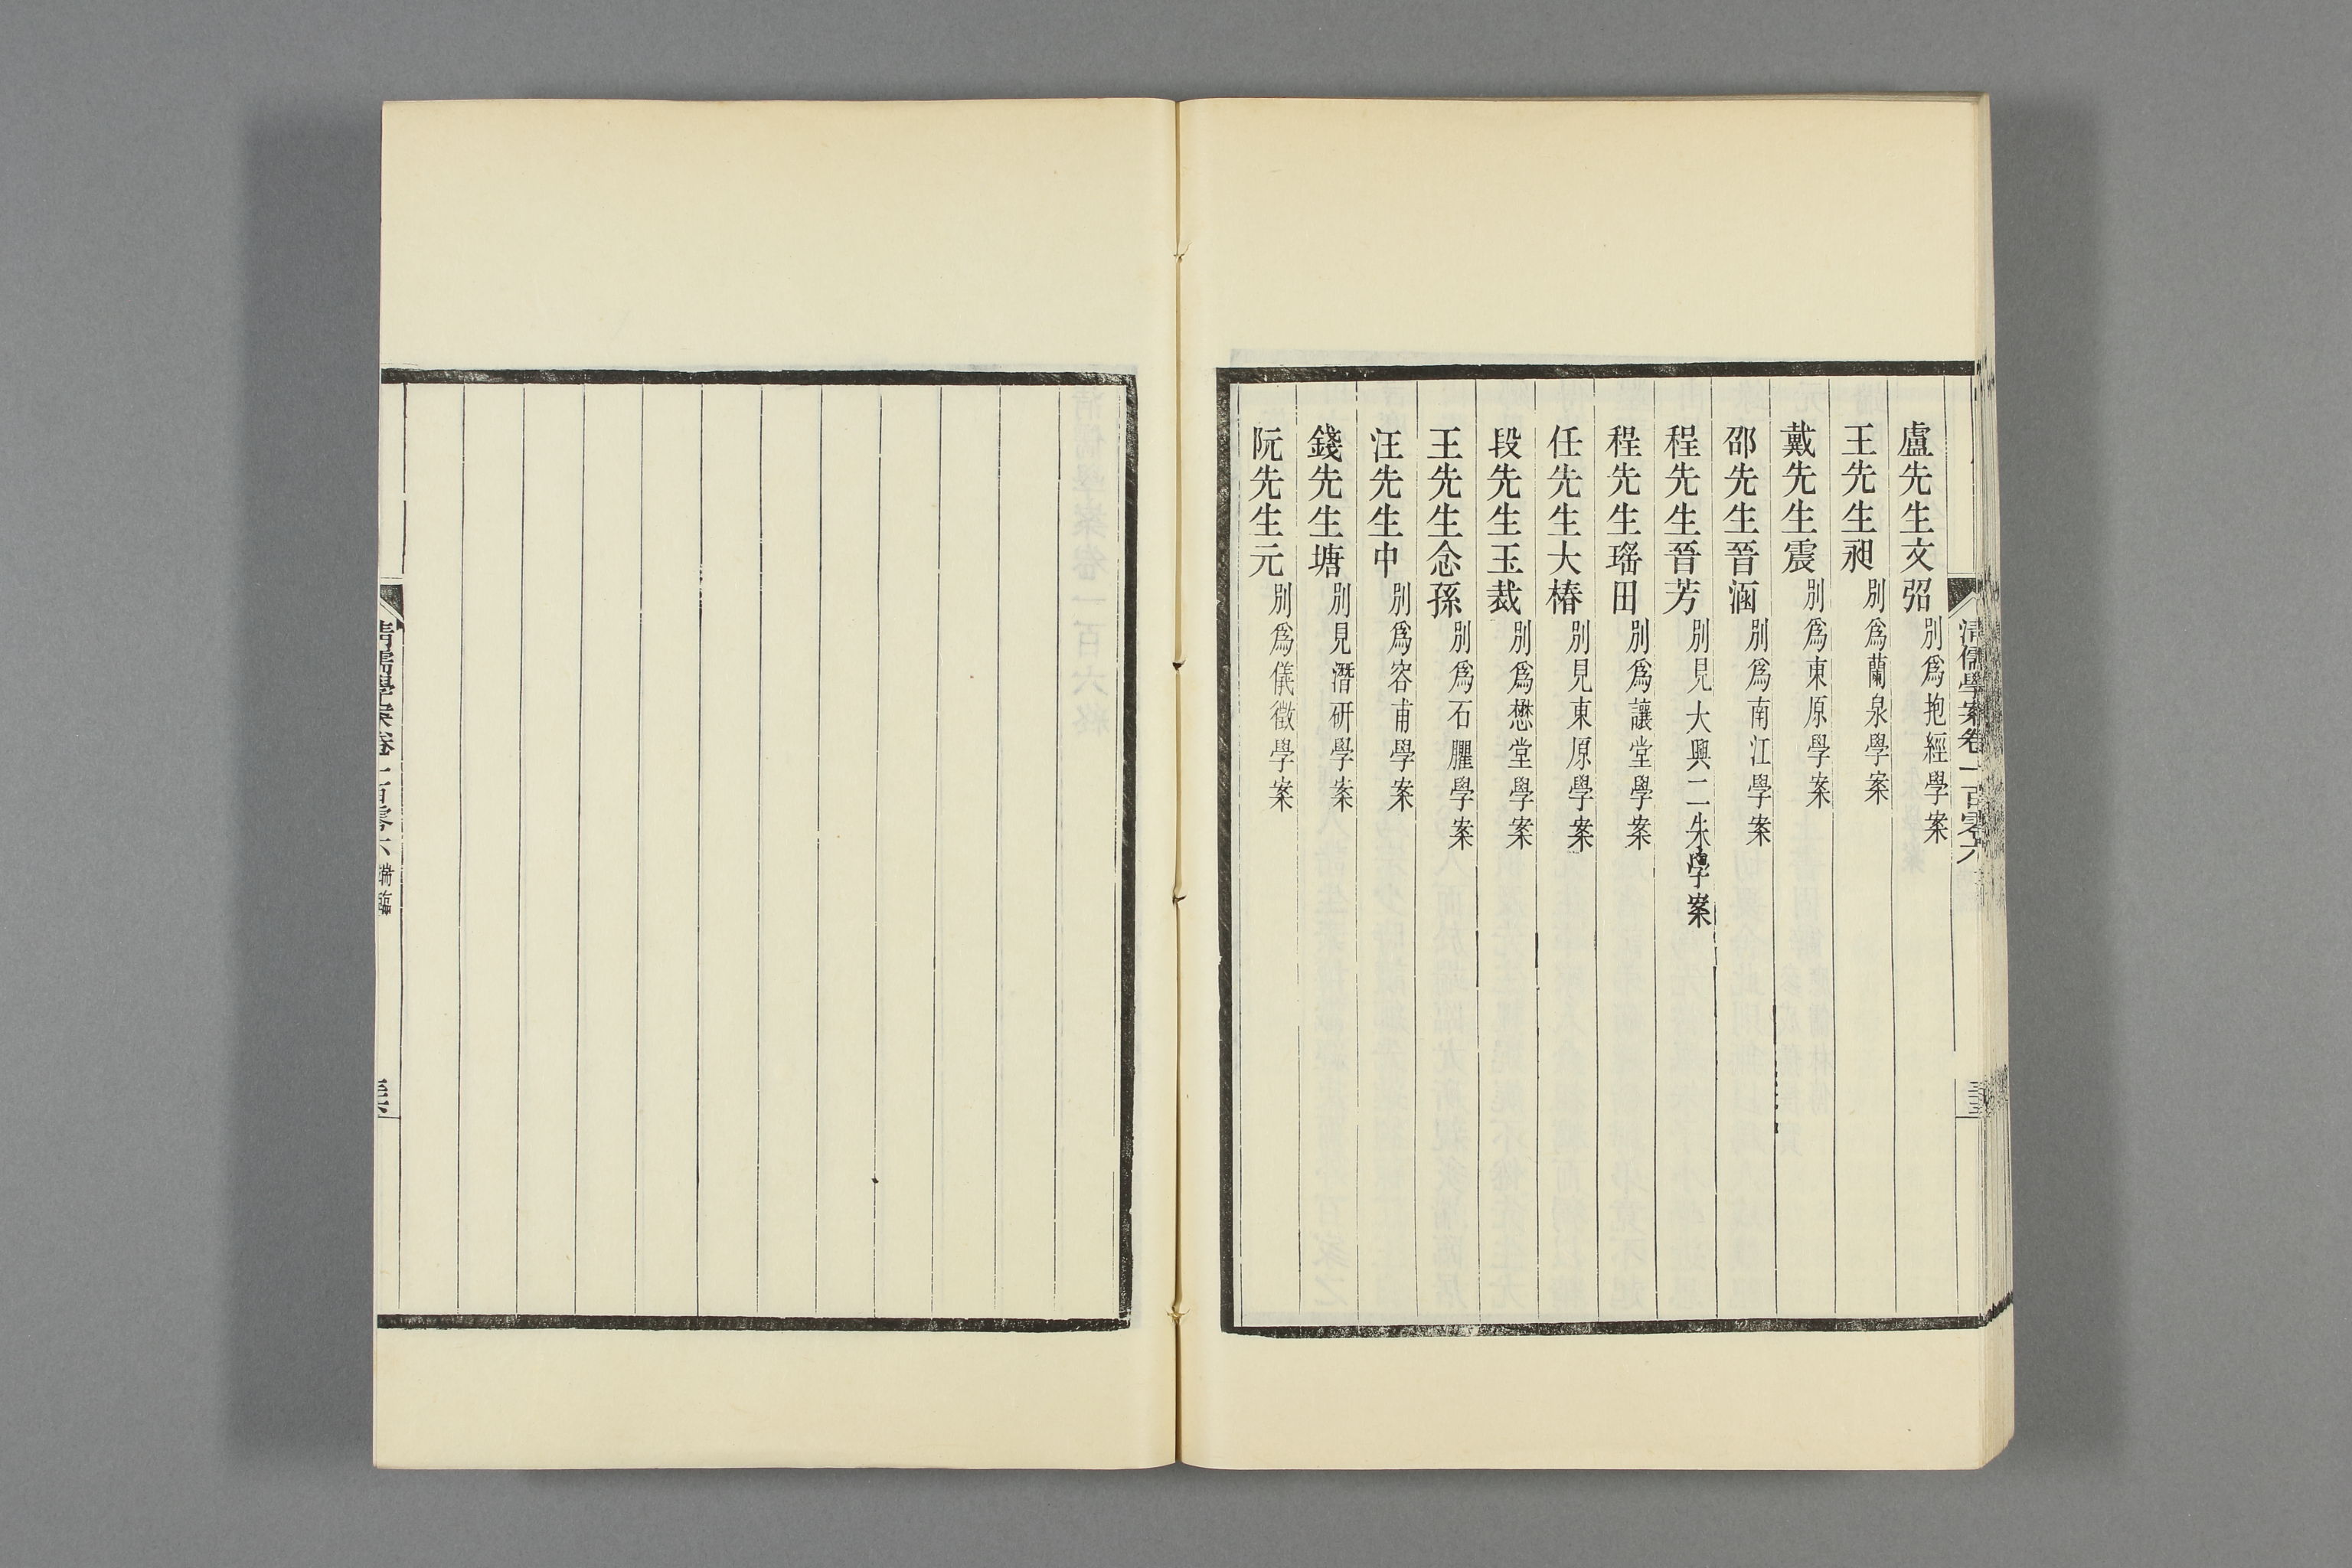 清儒學案卷一百零六
盧先生文弨別爲抱經學案
王先生昶別爲蘭泉學案
戴先生震別爲東原學案
邵先生晉涵別爲南江學案
程先生晉芳別見大興二朱學案
程先生瑤田別爲讓堂學案
任先生大椿別見東原學案
段先生玉裁別爲懋堂學案
王先生念孫別爲石臞學案
汪先生中別爲容甫學案
錢先生塘別見潛研學案
阮先生元別爲儀徵學案
清儒學案卷一百零六 端臨